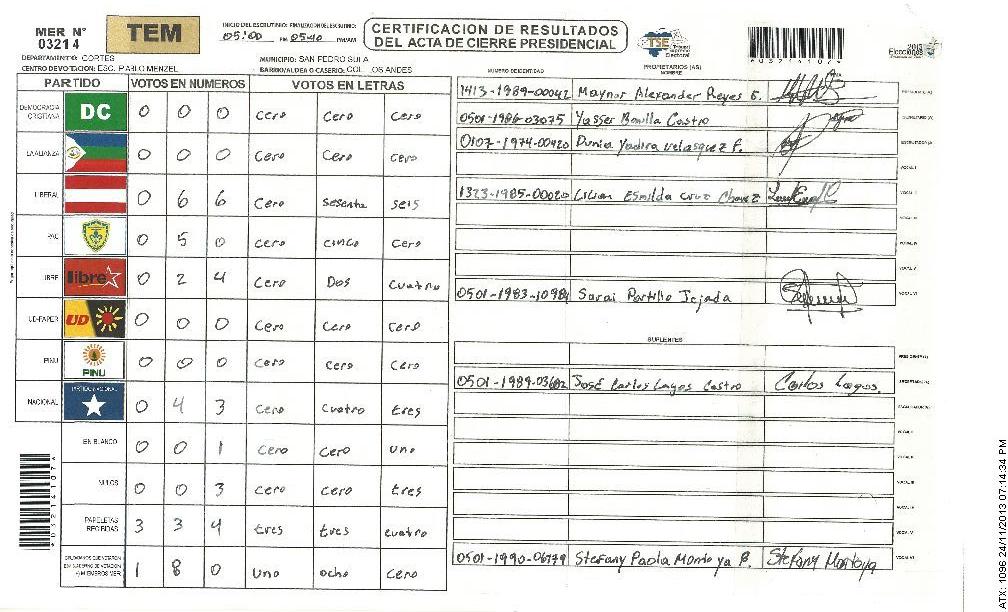 MER N° 03214
TEM
INICIO DEL ESCRUTINIO: FINALIZACION DEL ESCRUTINIO:
05:00 PM 05:40 PM/AM
CERTIFICACION DE RESULTADOS
DEL ACTA DE CIERRE PRESIDENCIAL
TSE Tribunal Supremo Electoral
2013 Elecciones
DEPARTAMENTO: CORTES
MUNICIPIO: SAN PEDRO SULA
CENTRO DE VOTACION: ESC. PABLO MENZEL
BARRIO/ALDEA O CASERIO: COL. LOS ANDES
PARTIDO VOTOS EN NUMEROS VOTOS EN LETRAS
DEMOCRACIA CRISTIANA DC 0 0 0 Cero Cero Cero
LA ALIANZA 0 0 0 Cero Cero Cero
LIBERAL 0 6 6 Cero Sesenta Seis
PAC 0 5 0 Cero Cinco Cero
LIBRE libre 0 2 4 Cero Dos Cuatro
UD-FAPER UD 0 0 0 Cero Cero Cero
PINU PINU 0 0 0 Cero Cero Cero
NACIONAL PARTIDO NACIONAL 0 4 3 Cero Cuatro tres
EN BLANCO 0 0 1 Cero Cero Uno
NULOS 0 0 3 Cero Cero tres
PAPELETAS RECIBIDAS 3 3 4 tres tres cuatro
CIUDADANOS QUE VOTARON 1 8 0 Uno Ocho Cero
NUMERO DE IDENTIDAD PROPIETARIOS (AS) NOMBRE
1413-1989-00042 Maynor Alexander Reyes G. PRESIDENTE(A)
0501-1986-03075 Yasser Bonilla Castro SECRETARIO(A)
0107-1974-00420 Dunia Yadira Velasquez F. ESCRUTADOR(A)
VOCAL I
1323-1985-00020 Lilian Esmilda Cruz Chavez VOCAL II
VOCAL III
VOCAL IV
VOCAL V
0501-1983-10984 Sarai Portillo Tejada VOCAL VI
SUPLENTES
PRESIDENTE(A)
0501-1989-03602 José Carlos Lagos Castro Carlos Lagos. SECRETARIO(A)
ESCRUTADOR(A)
VOCAL I
VOCAL II
VOCAL III
VOCAL IV
VOCAL V
0501-1990-06779 Stefany Paola Montoya B. Stefany Montoya VOCAL VI
ATX: 1096 24/11/2013 07:14:34 PM